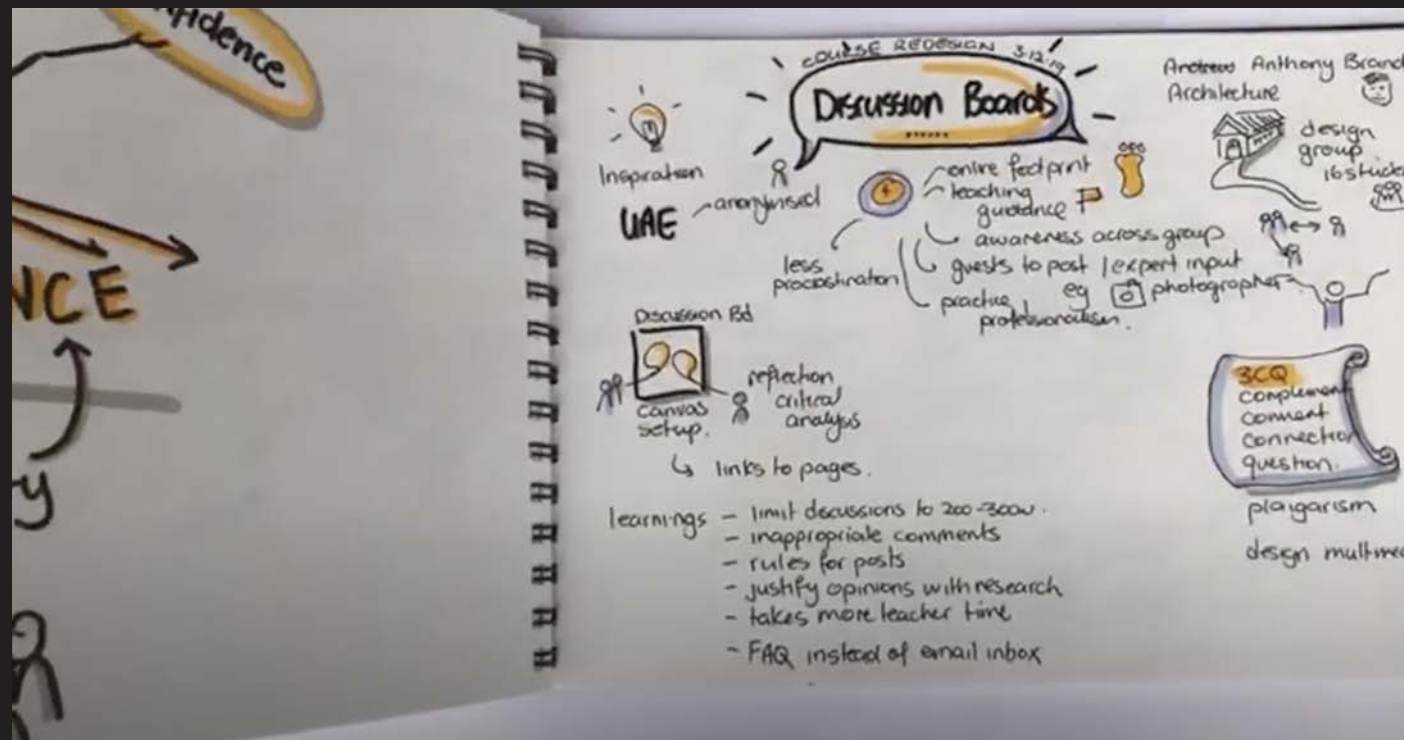 nfidence
NCE
y
COURSE REDESIGN 3·12·19
Discussion Boards
Inspiration
UAE
anonymised
online footprint
teaching
guidance
awareness across group
guests to post / expert input
eg photographer
practice
professionalism.
less
procrastination
Discussion Bd
Canvas
setup.
reflection
critical
analysis
links to pages.
learnings – limit discussions to 200-300w.
– inappropriate comments
– rules for posts
– justify opinions with research
– takes more teacher time
– FAQ instead of email inbox
Anthony Brand
Architecture
design
group
16 stude
3CQ
complement
comment
connection
question.
plaigarism
design multimed